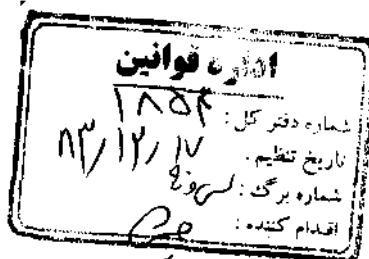 اداره قوانین
شماره دفتر کل: ۱۸۵۴
تاریخ تنظیم. ۸۳/۱۲/۱۷
شماره برگ:
اقدام کننده: